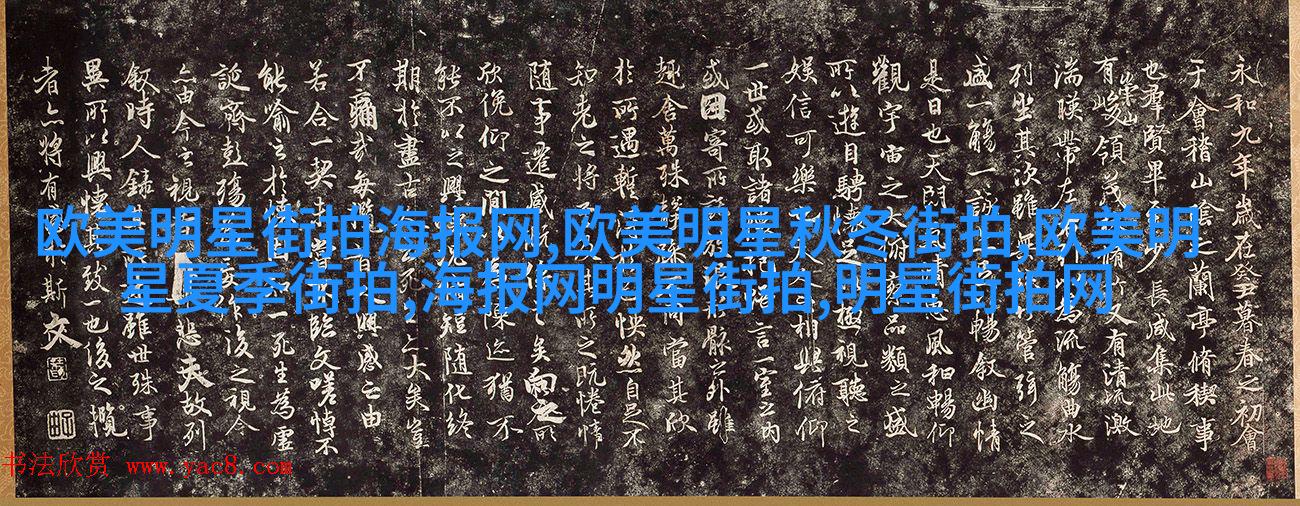 永和九年歲在癸丑暮春之初會
于會稽山陰之蘭亭脩稧事
也羣賢畢少長咸集此地
有崇山峻領茂脩又有清流激
湍暎帶左為流觴曲水
列坐其次雖無管弦之
盛一觴一詠暢敘幽情
是日也天朗清惠風和暢仰
觀宇宙之大俯品類之盛
所以遊目騁足極視聽之
娛信可樂人相與俯仰
一世或取諸言一室之內
或因寄所形骸之外雖
趣舍萬殊同當其欣
於所遇暫怏然自足不
知老之將所之既惓情
隨事遷感慨之矣向之所
欣俛仰之間陳迹猶不
能不以之興短隨化終
期於盡古死大矣豈
不痛哉每攬昔興感之由
若合一契未嘗臨文嗟悼不
能喻之於懷一死生為虛
誕齊彭殤妄作後之視今
亦由今之視悲夫故列
叙時人錄雖世殊事
異所以興懷其致一也後之攬
者亦將有斯文
欧美明星街拍海报网,欧美明星秋冬街拍,欧美明
星夏季街拍,海报网明星街拍,明星街拍网
书法欣赏 www.yac8.com